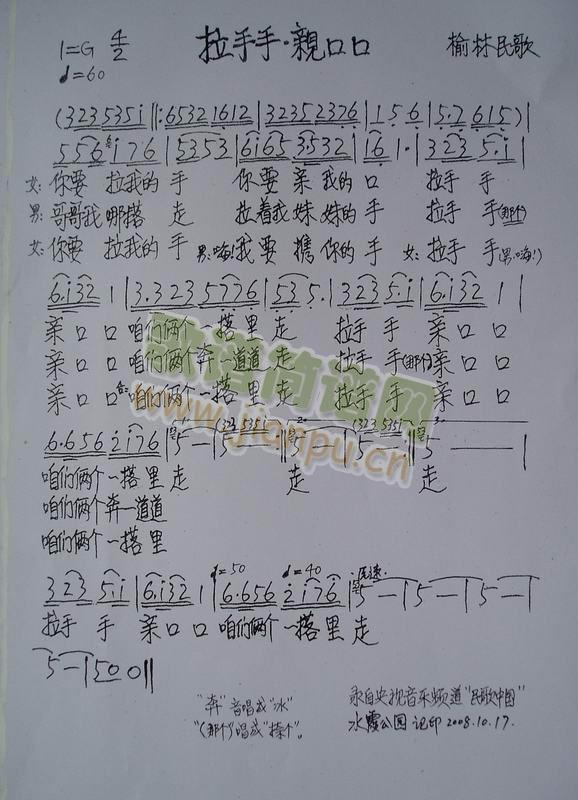 1=G 4/2 拉手手·親口口 榆林民歌
♩=60
(323 535i ‖: 65321612 | 32352376 | 1 5 6 | 5.7 615) |
556i76 | 5353 | 6i65 3532 | 16 1· | 323 5.i |
女: 你要 拉我的 手 你要 亲我的 口 拉手 手
男: 哥哥我 哪搭 走 拉着我 妹妹的 手 拉手 手(那个)
女: 你要 拉我的 手 男:嗨!我要 携你的 手 女: 拉手 手(男:嗨!)
6.i32 1 | 3.323 5776 | 53 5. | 323 5.i | 6.i32 1 |
亲口 口 咱们俩个 一搭里 走 拉手 手 亲口 口
亲口 口 咱们俩个奔 一道道 走 拉手 手(那个)亲口 口
亲口 口 合:咱们俩个 一搭里 走 拉手 手 亲口 口
歌谱简谱网
www.jianpu.cn
6.656 2i76 | 5 — | 5 (323 535i) :‖ 5 — | 5 — (323 535i) :‖ 5 — |
咱们俩个 一搭里 走 走 走
咱们俩个奔 一道道
咱们俩个 一搭里
♩=50 ♩=40 原速
323 5.i | 6.i32 1 | 6.656 2i76 | 5 — | 5 — | 5 — |
拉手 手 亲口 口 咱们俩个 一搭里 走
5 — | 50 0 ‖
"奔"音唱成"冰" 录自央视音乐频道"民歌中国"
"(那个)"唱成"捺个"。 水霞公园 记印 2008.10.17.